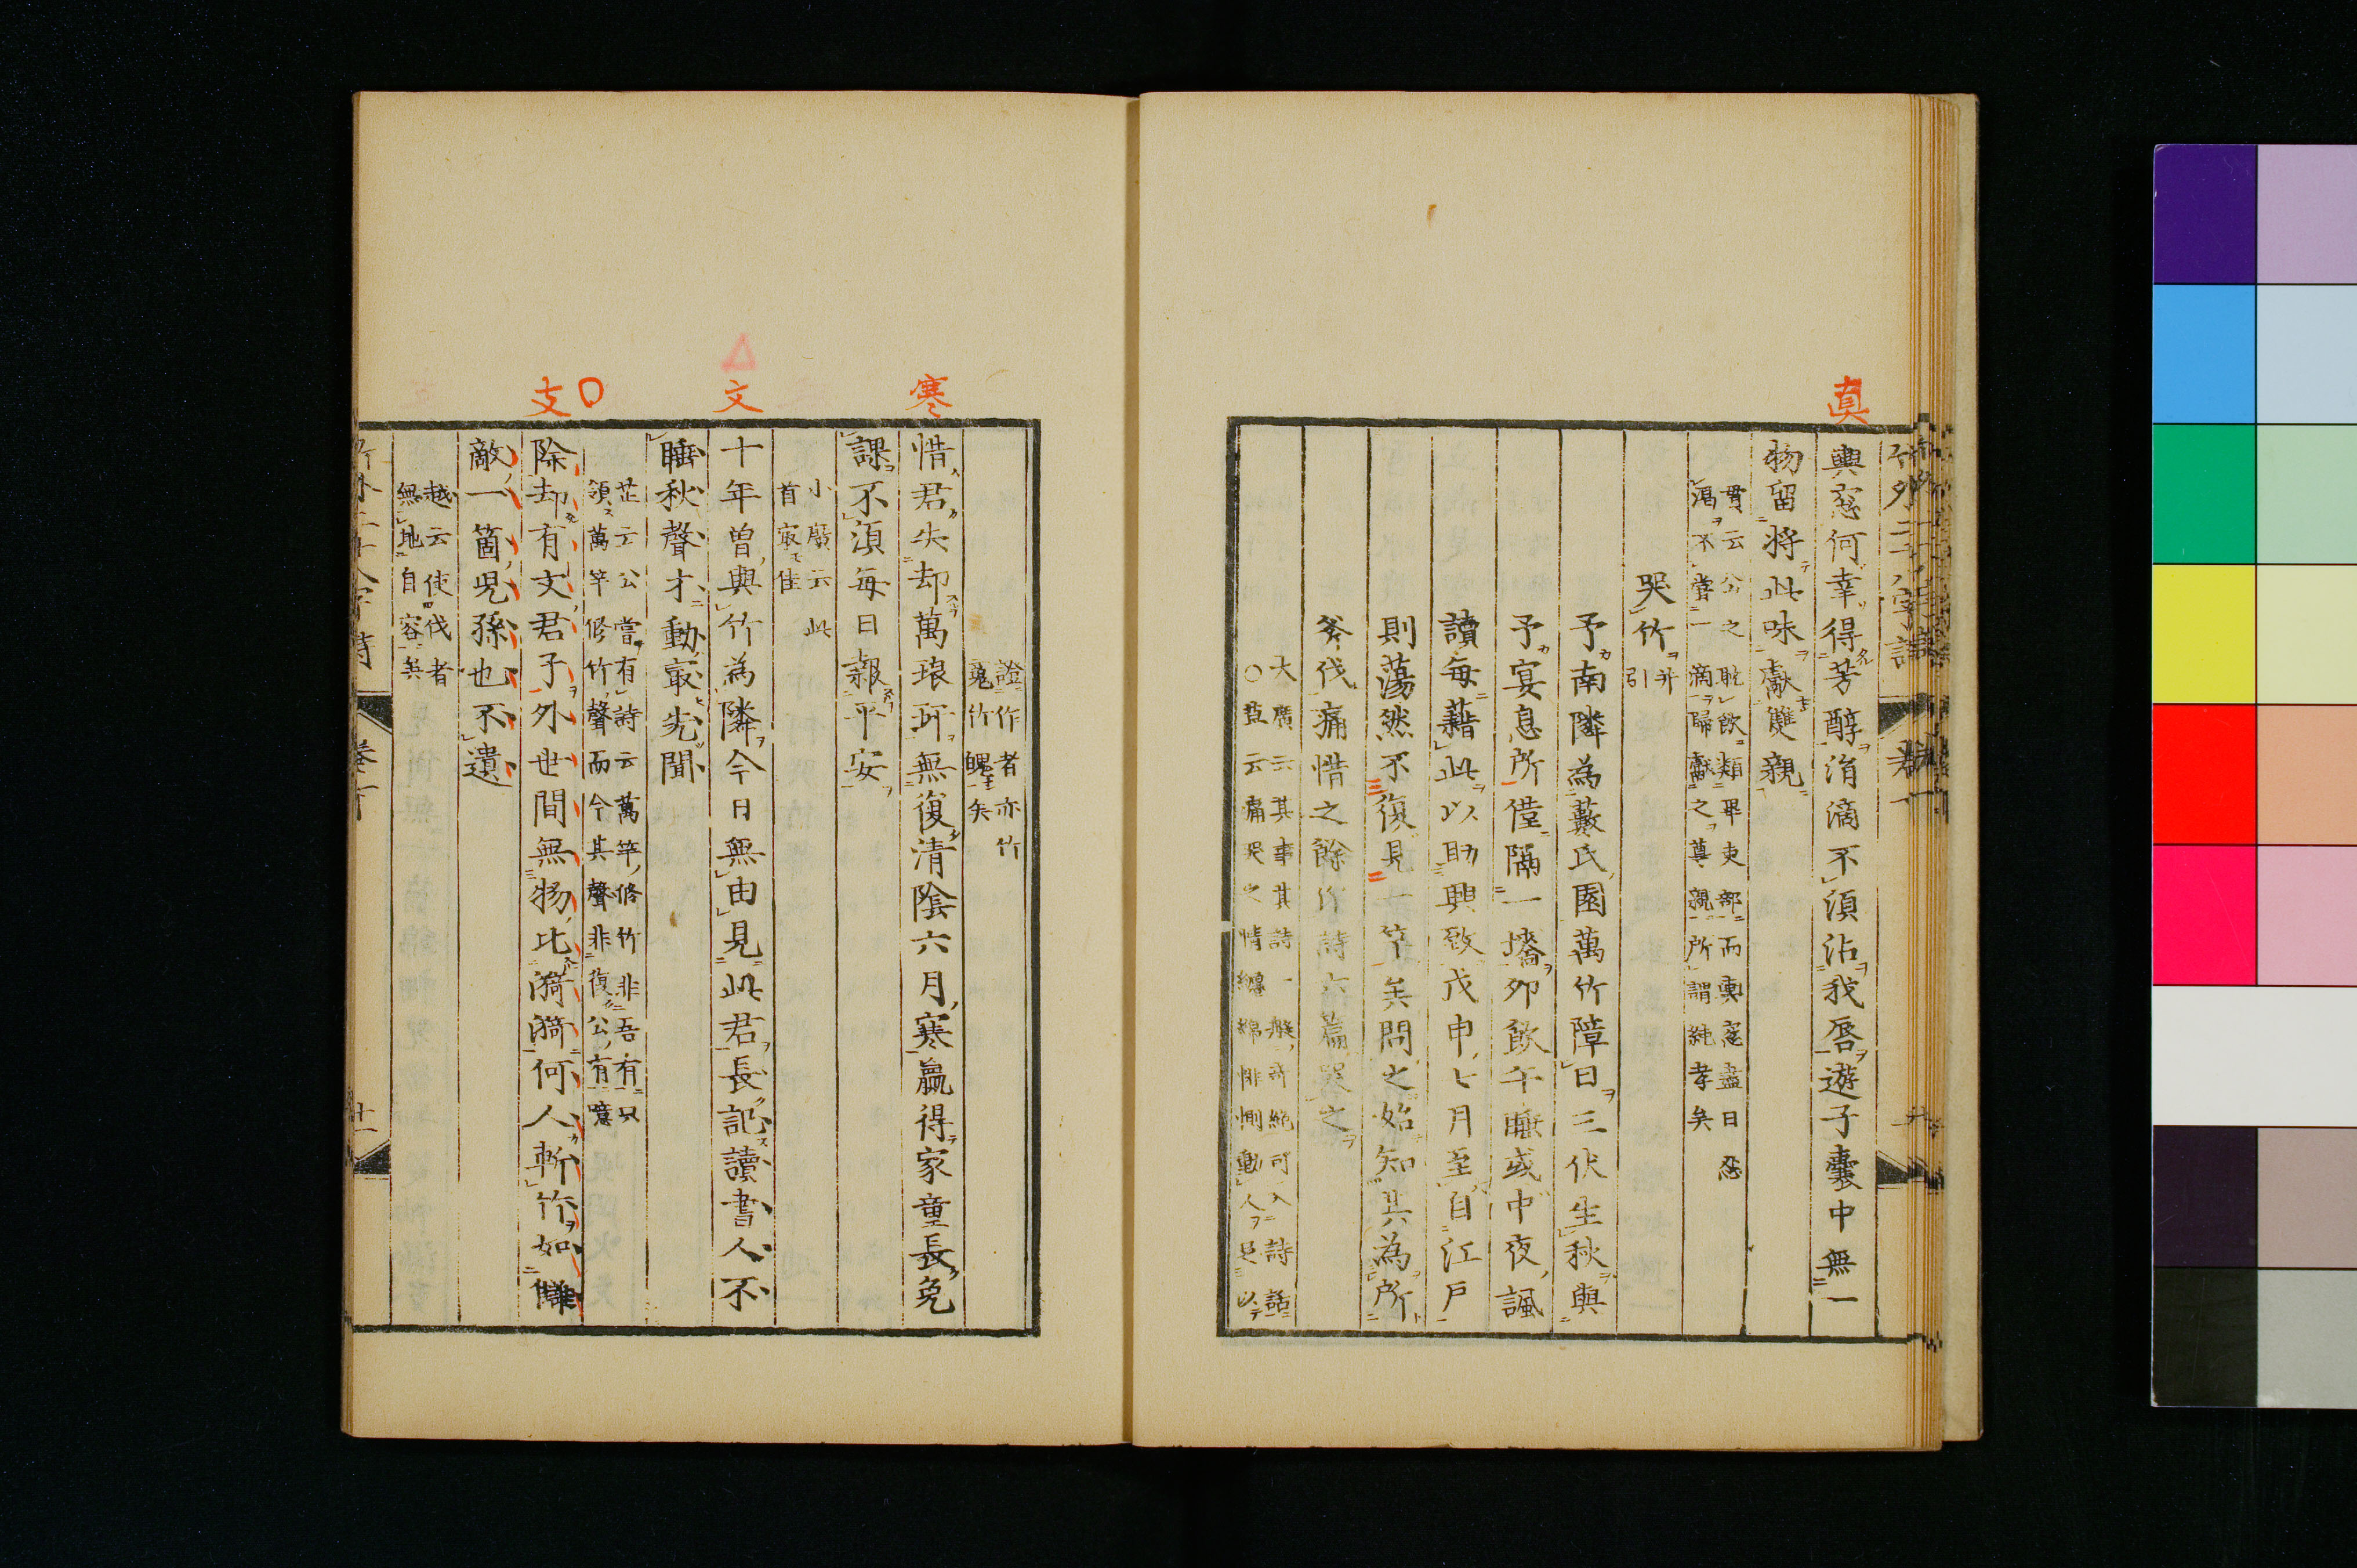 眞
輿窓何幸得芳醇涓滴不須沾我唇遊子囊中無一
物留將此味獻雙親
貫云公之耽飲類畢吏部而輿窓盡日忍
渴不嘗一滴歸獻之尊親所謂純孝矣
哭竹
并
引
予南隣為藪氏園萬竹障日三伏生秋與
予宴息所僅隔一墻卯飲午睡或中夜諷
讀每藉此以助興致戊申七月至自江戶
則蕩然不復見一竿矣問之始知其為所
斧伐痛惜之餘作詩六篇哭之
大廣云其事其詩一般奇絕可入詩話
○ 云痛哭之情纏綿悱惻動人足以
詮作者亦竹
魂竹魄矣
寒
惜君失却萬琅玕無復清陰六月寒贏得家童長免
課不須每日報平安
小廣云此
首寂佳
文
十年曾與竹為隣今日無由見此君長記讀書人不
睡秋聲才動寂先聞
芷云公嘗有詩云萬竿修竹非吾有只
領萬竿修竹聲而今其聲非復公有噫
支
除却有文君子外世間無物比漪漪何人斬竹如
敵一箇兒孫也不遺
越云使伐者
無地自容矣
卷一
十一